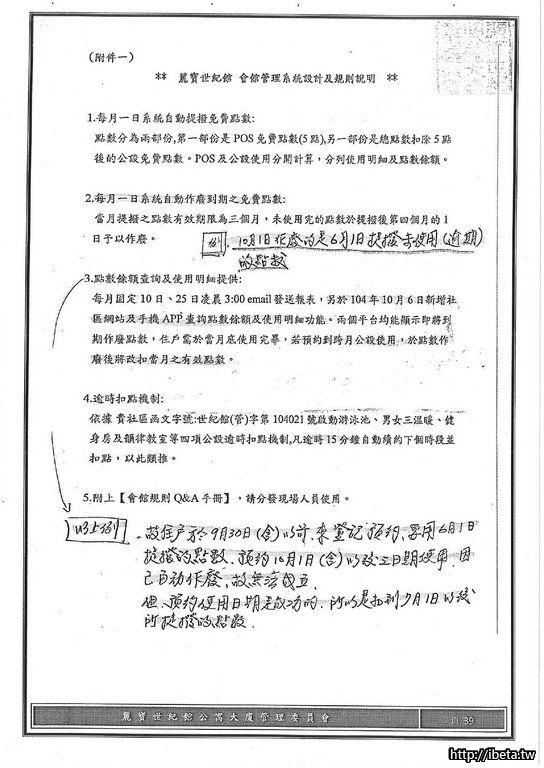 (附件一)
** 麗寶世紀館 會館管理系統設計及規則說明 **
1.每月一日系統自動提撥免費點數:
點數分為兩部份,第一部份是 POS 免費點數(5點),另一部份是總點數扣除 5 點
後的公設免費點數。POS 及公設使用分開計算，分列使用明細及點數餘額。
2.每月一日系統自動作廢到期之免費點數:
當月提撥之點數有效期限為三個月，未使用完的點數於提撥後第四個月的 1
日予以作廢。
例 10月1日作廢的是6月1日提撥未使用(逾期)
的點數
3.點數餘額查詢及使用明細提供:
每月固定 10 日、25 日凌晨 3:00 email 發送報表，另於 104 年 10 月 6 日新增社
區網站及手機 APP 查詢點數餘額及使用明細功能。兩個平台均能顯示即將到
期作廢點數，住戶需於當月底使用完畢，若預約到跨月公設使用，於點數作
廢後將改扣當月之有效點數。
4.逾時扣點機制:
依據 貴社區函文字號:世紀館(管)字第 104021 號啟動游泳池、男女三溫暖、健
身房及韻律教室等四項公設逾時扣點機制,凡逾時 15 分鐘自動續約下個時段並
扣點，以此類推。
5.附上【會館規則 Q&A 手冊】，請分發現場人員使用。
以上例
故住戶於9月30日(含)以前,來登記預約,要用6月1日
提撥的點數、預約10月1日(含)以後之日期使用,因
已自動作廢,故無法成立.
但、預約使用日期是成功的、所以是扣到7月1日以後
所提撥的點數.
麗寶世紀館公寓大廈管理委員會
頁 39
http://ibeta.tw